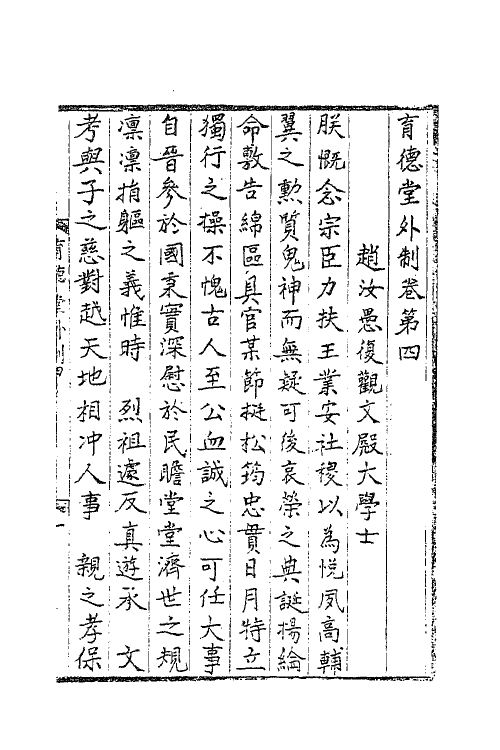 育德堂外制卷第四
趙汝愚復觀文殿大學士
朕慨念宗臣力扶王業安社稷以為悅夙高輔
翼之勲質鬼神而無疑可後哀榮之典誕揚綸
命敷告綿區具官某節挺松筠忠貫日月特立
獨行之操不愧古人至公血誠之心可任大事
自晉參於國秉實深慰於民瞻堂堂濟世之規
凛凛捐軀之義惟時 烈祖遽反真遊承 文
考與子之慈對越天地相冲人事 親之孝保
育德堂外制四
一